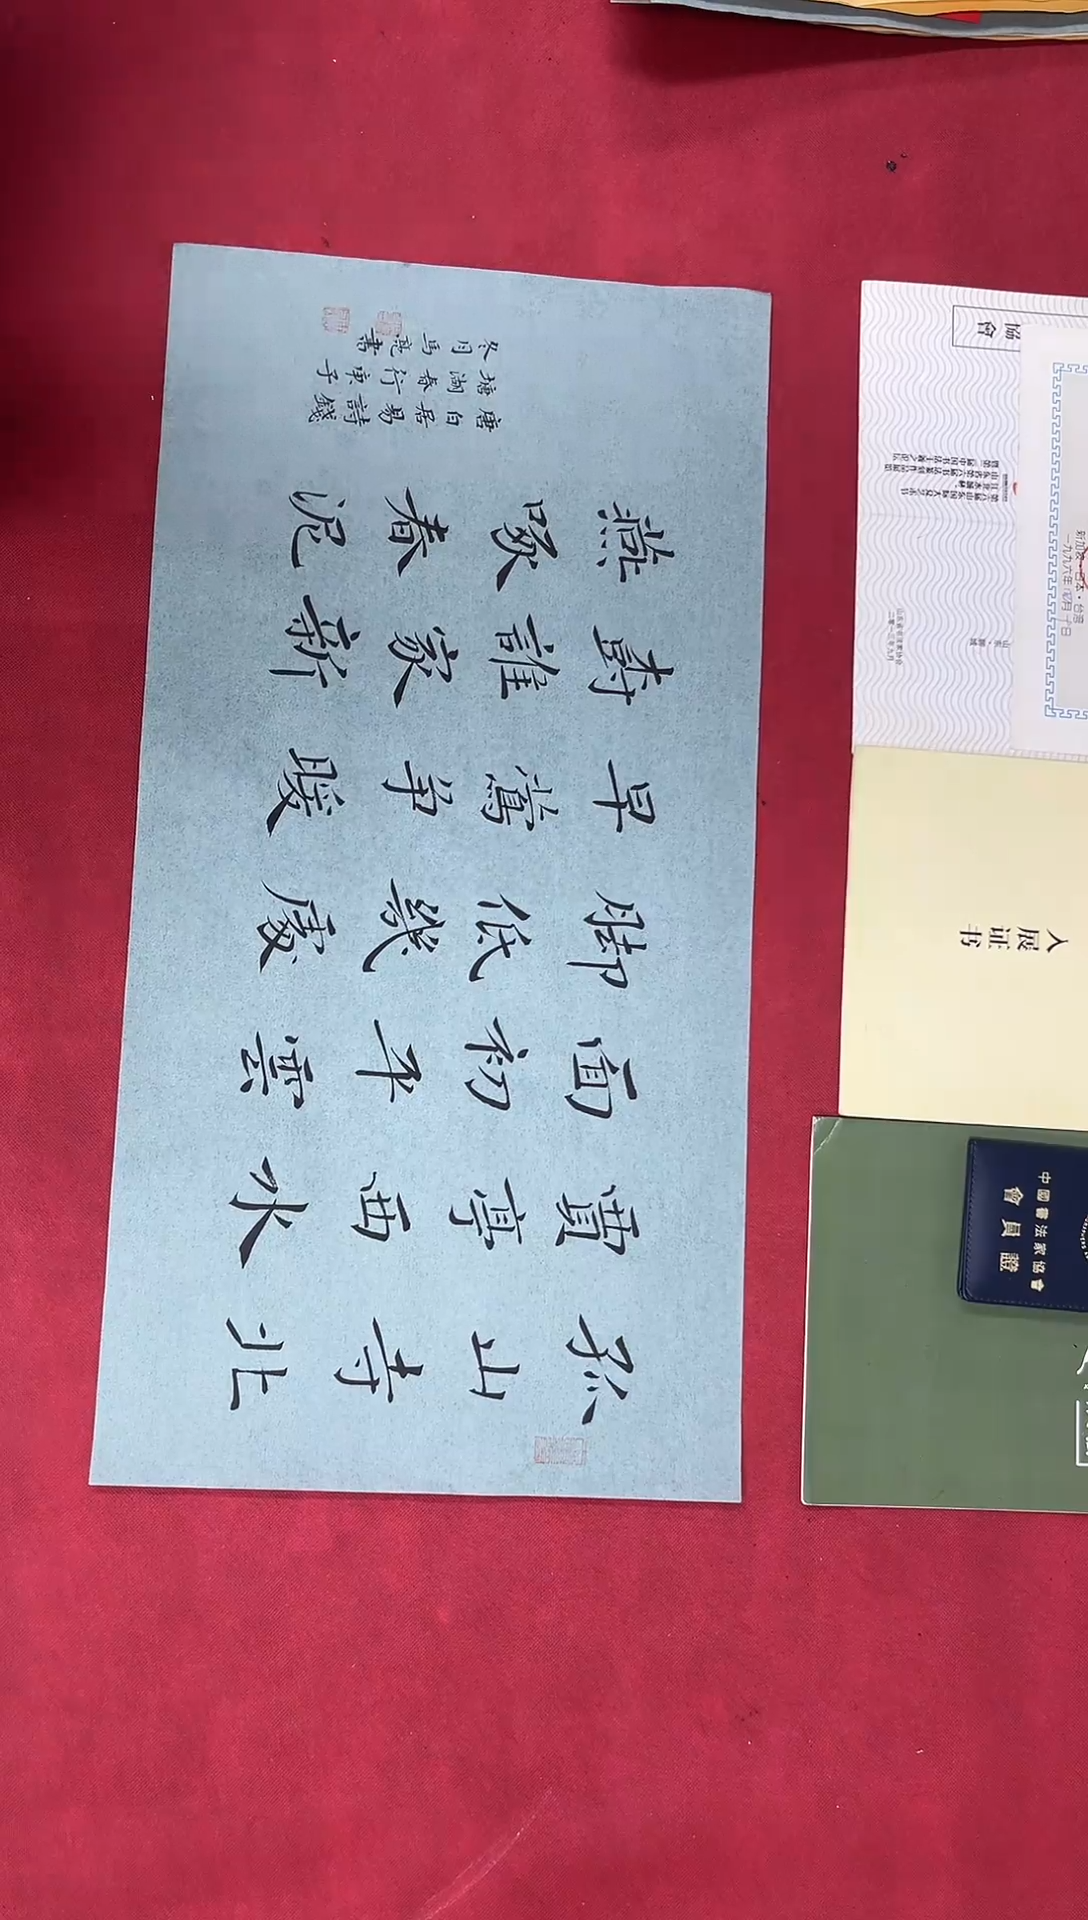 孤山寺北
賈亭西水
面初平雲
脚低幾處
早鶯争暖
樹誰家新
燕啄春泥
唐白居易詩錢
塘湖春行庚子
冬月馬亮書
協會
入展证书
中國書法家協會
會員證